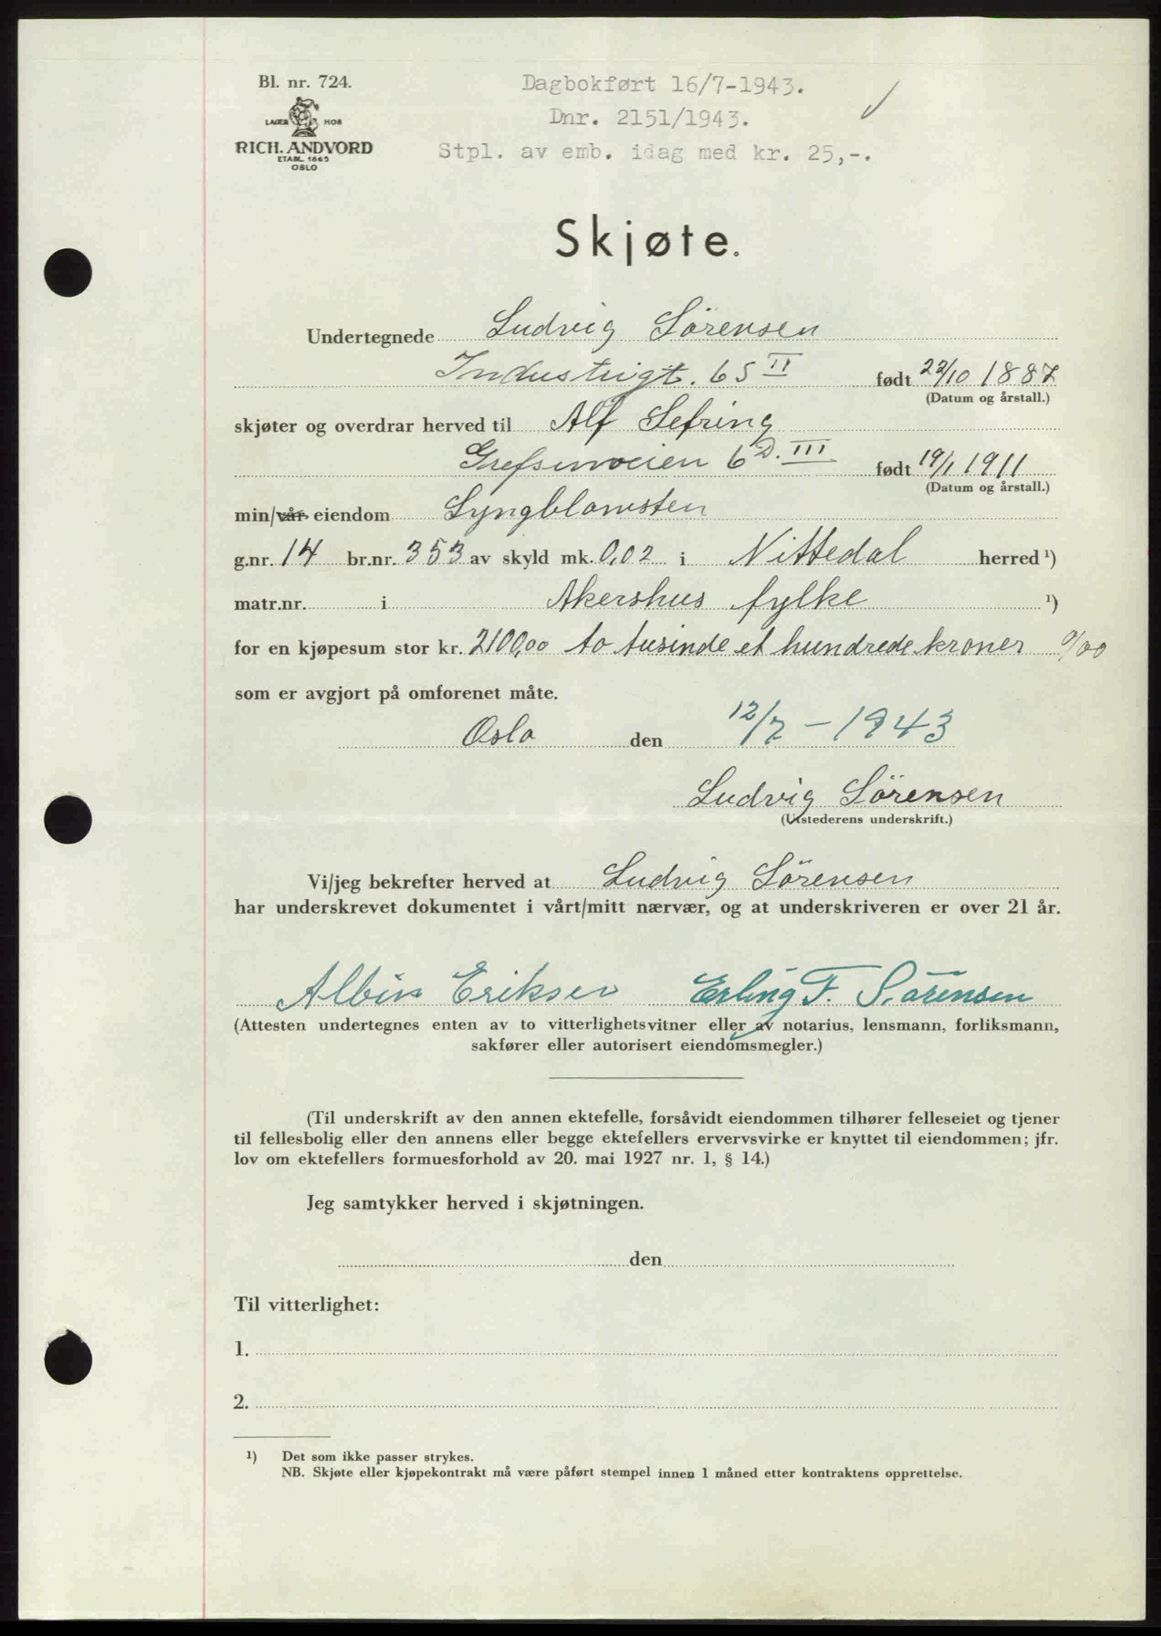 Bl. nr. 724.
LAGER HOS
RICH. ANDVORD
ETABL. 1865
OSLO
Dagbokført 16/7-1943.
Dnr. 2151/1943.
Stpl. av emb. idag med kr. 25,-.
Skjøte.
Undertegnede Ludvig Sörensen
Industrigt. 65 II født 22/10 1887
(Datum og årstall.)
skjøter og overdrar herved til Alf Sefring
Grefsenveien 6 D. III født 19/1 1911
(Datum og årstall.)
min/vår eiendom Lyngblomsten
g.nr. 14 br.nr. 353 av skyld mk. 0,02 i Nittedal herred ¹)
matr.nr. i Akershus fylke ¹)
for en kjøpesum stor kr. 2100,00 to tusinde et hundrede kroner 0/00
som er avgjort på omforenet måte.
Oslo den 12/7 - 1943
Ludvig Sörensen
(Utstederens underskrift.)
Vi/jeg bekrefter herved at Ludvig Sörensen
har underskrevet dokumentet i vårt/mitt nærvær, og at underskriveren er over 21 år.
Albin Eriksen Erling F. Sörensen
(Attesten undertegnes enten av to vitterlighetsvitner eller av notarius, lensmann, forliksmann,
sakfører eller autorisert eiendomsmegler.)
(Til underskrift av den annen ektefelle, forsåvidt eiendommen tilhører felleseiet og tjener
til fellesbolig eller den annens eller begge ektefellers ervervsvirke er knyttet til eiendommen; jfr.
lov om ektefellers formuesforhold av 20. mai 1927 nr. 1, § 14.)
Jeg samtykker herved i skjøtningen.
den
Til vitterlighet:
1.
2.
¹) Det som ikke passer strykes.
NB. Skjøte eller kjøpekontrakt må være påført stempel innen 1 måned etter kontraktens opprettelse.